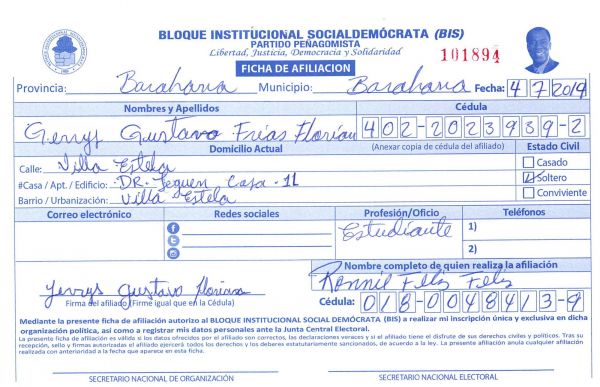 BLOQUE INSTITUCIONAL SOCIALDEMÓCRATA (BIS)
PARTIDO PEÑAGOMISTA
Libertad, Justicia, Democracia y Solidaridad
101894
FICHA DE AFILIACION
Provincia: Barahona Municipio: Barahona Fecha: 4/7/2019
Nombres y Apellidos Cédula
Gerrys Gustavo Frias Florian 402-2023939-2
Domicilio Actual (Anexar copia de cédula del afiliado) Estado Civil
Calle: Villa Estela Casado
#Casa / Apt. / Edificio: DR. Jeguen Casa-11 Soltero
Barrio / Urbanización: Villa Estela Conviviente
Correo electrónico Redes sociales Profesión/Oficio Teléfonos
Estudiante 1)
2)
Nombre completo de quien realiza la afiliación
Gustavo Florian Ronnil Feliz Feliz
Firma del afiliado (Firme igual que en la Cédula) Cédula: 018-0048413-9
Mediante la presente ficha de afiliación autorizo al BLOQUE INSTITUCIONAL SOCIAL DEMÓCRATA (BIS) a realizar mi inscripción única y exclusiva en dicha
organización política, así como a registrar mis datos personales ante la Junta Central Electoral.
La presente ficha de afiliación es válida si los datos ofrecidos por el afiliado son correctos, las declaraciones veraces y si el afiliado tiene el disfrute de sus derechos civiles y políticos. Tras su
recepción, sello y firmas autorizadas el afiliado ejercerá todos los derechos y los deberes estatutariamente sancionados, de acuerdo a la ley. La presente afiliación anula cualquier afiliación
realizada con anterioridad a la fecha que aparece en esta ficha.
SECRETARIO NACIONAL DE ORGANIZACIÓN SECRETARIO NACIONAL ELECTORAL